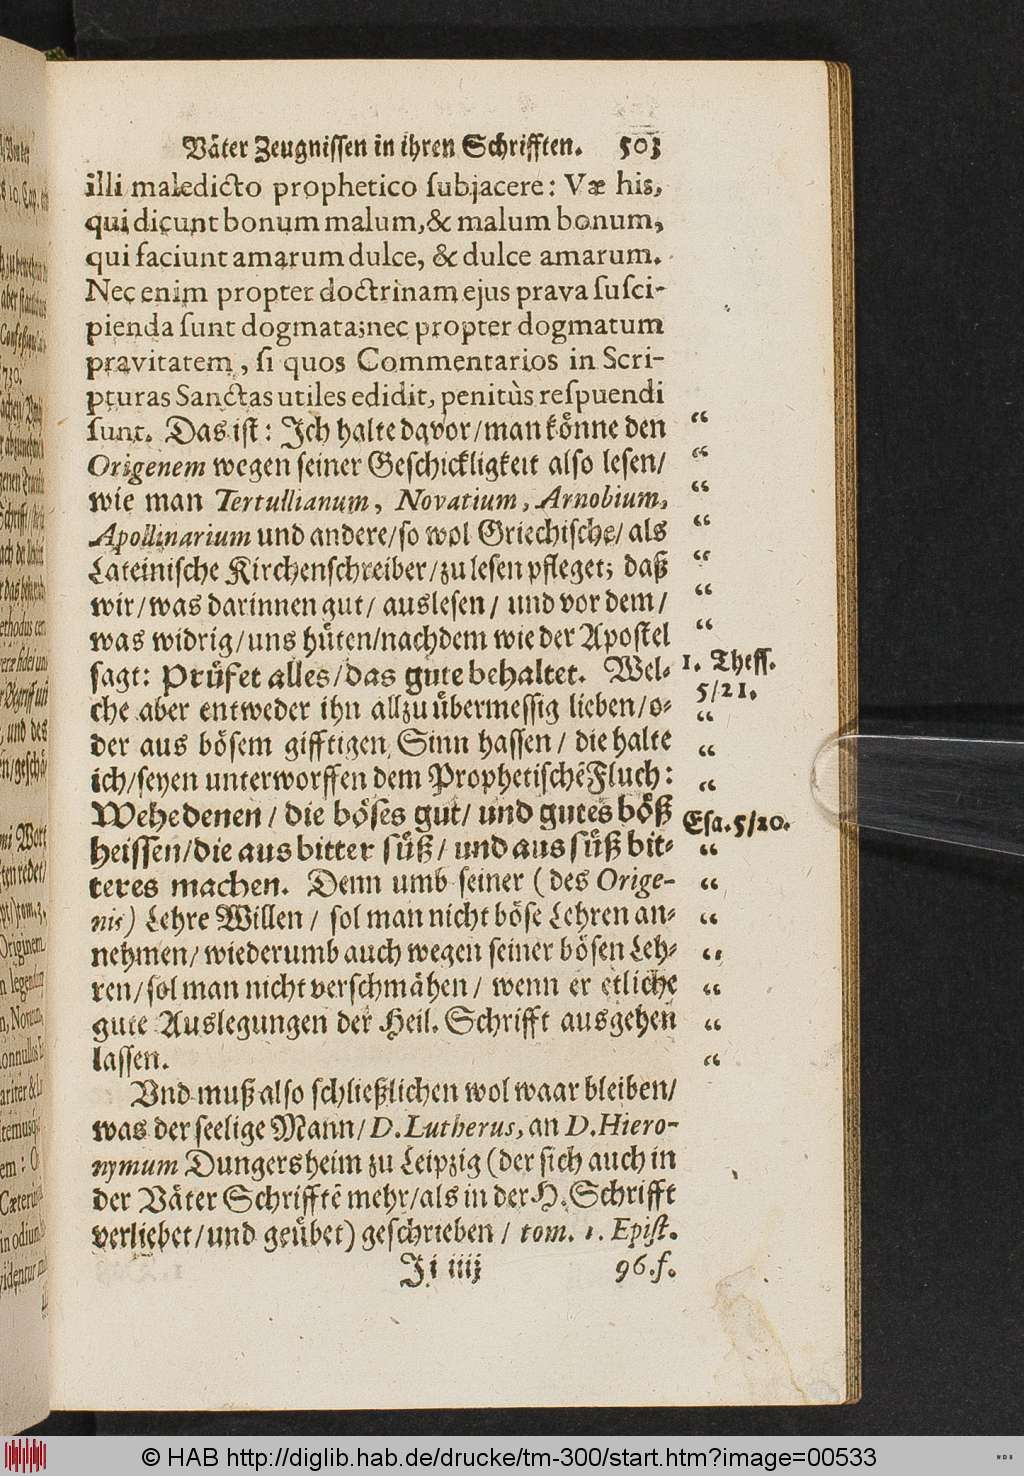 Väter Zeugnissen in ihren Schrifften. 503
illi maledicto prophetico subjacere: Væ his,
qui dicunt bonum malum, & malum bonum,
qui faciunt amarum dulce, & dulce amarum.
Nec enim propter doctrinam ejus prava susci-
pienda sunt dogmata; nec propter dogmatum
pravitatem, si quos Commentarios in Scri-
pturas Sanctas utiles edidit, penitùs respuendi
sunt. Das ist: Ich halte davor/ man könne den “
Origenem wegen seiner Geschickligkeit also lesen/ “
wie man Tertullianum, Novatium, Arnobium, “
Apollinarium und andere/ so wol Griechische/ als “
Lateinische Kirchenschreiber/ zu lesen pfleget; daß “
wir/ was darinnen gut/ auslesen/ und vor dem/ “
was widrig/ uns hüten/ nachdem wie der Apostel “
sagt: Prüfet alles/ das gute behaltet. Wel- 1. Thess.
5/21.
che aber entweder ihn allzu übermessig lieben/ o- “
der aus bösem gifftigen Sinn hassen/ die halte “
ich/ seyen unterworffen dem Prophetischē Fluch: “
Wehe denen/ die böses gut/ und gutes böß Esa. 5/20.
heissen/ die aus bitter süß/ und aus süß bit- “
teres machen. Denn umb seiner (des Orige- “
nis) Lehre Willen/ sol man nicht böse Lehren an- “
nehmen/ wiederumb auch wegen seiner bösen Leh- “
ren/ sol man nicht verschmähen/ wenn er etliche “
gute Auslegungen der Heil. Schrifft ausgehen “
lassen. “
Vnd muß also schließlichen wol waar bleiben/
was der seelige Mann/ D. Lutherus, an D. Hiero-
nymum Dungersheim zu Leipzig (der sich auch in
der Väter Schrifftē mehr/ als in der H. Schrifft
verliebet/ und geübet) geschrieben/ tom. 1. Epist.
Ii iiij 96. f.
© HAB http://diglib.hab.de/drucke/tm-300/start.htm?image=00533